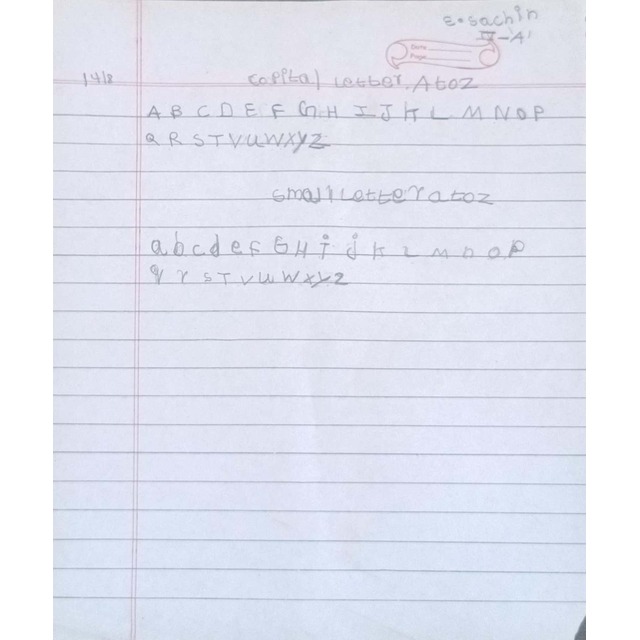 E.sachin
IV-'A'
Date
Page
14/8
capital Letter. A to Z
A B C D E F G H I J K L M N O P
Q R S T V U W X Y Z
small Letter a to z
a b c d e F G H i j K L M n O P
q r s T V U W X Y Z